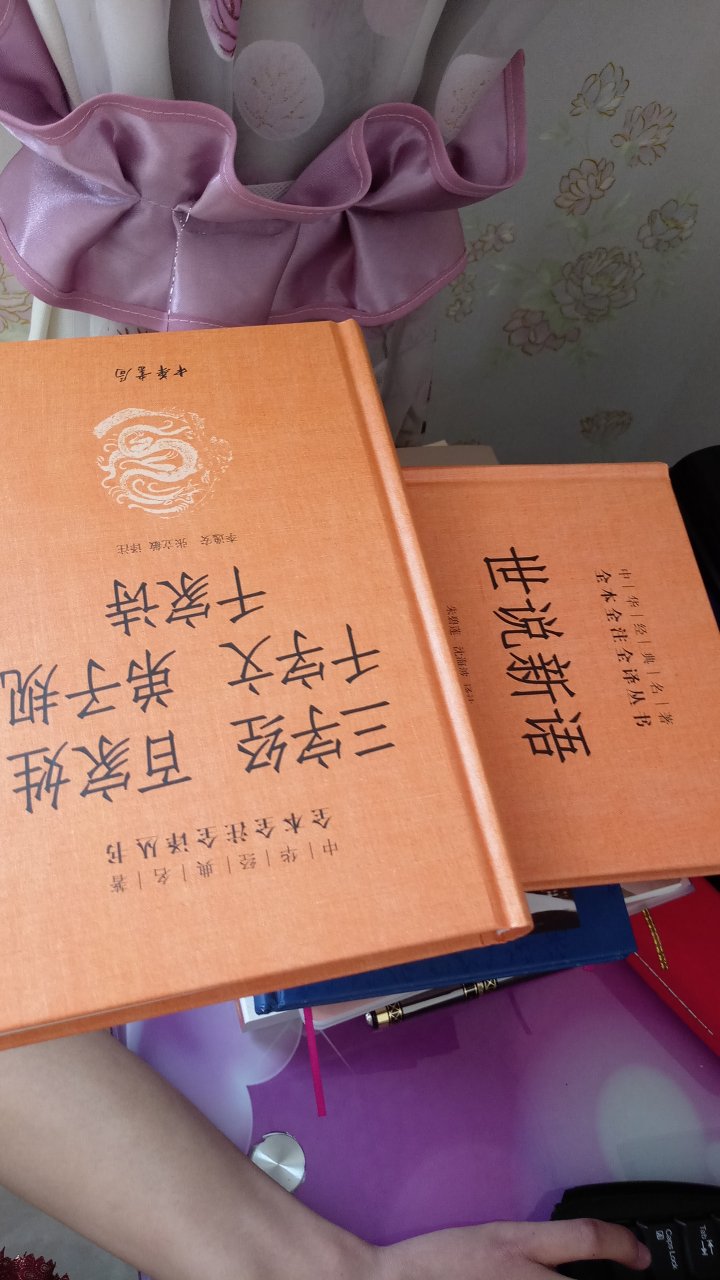 中|华|经|典|名|著
全本全注全译丛书
三字经 百家姓
千字文 弟子规
千家诗
李逸安 张立敏 译注
中华书局
中|华|经|典|名|著
全本全注全译丛书
世说新语
朱碧莲 沈海波 译注
Tab
Caps Lock